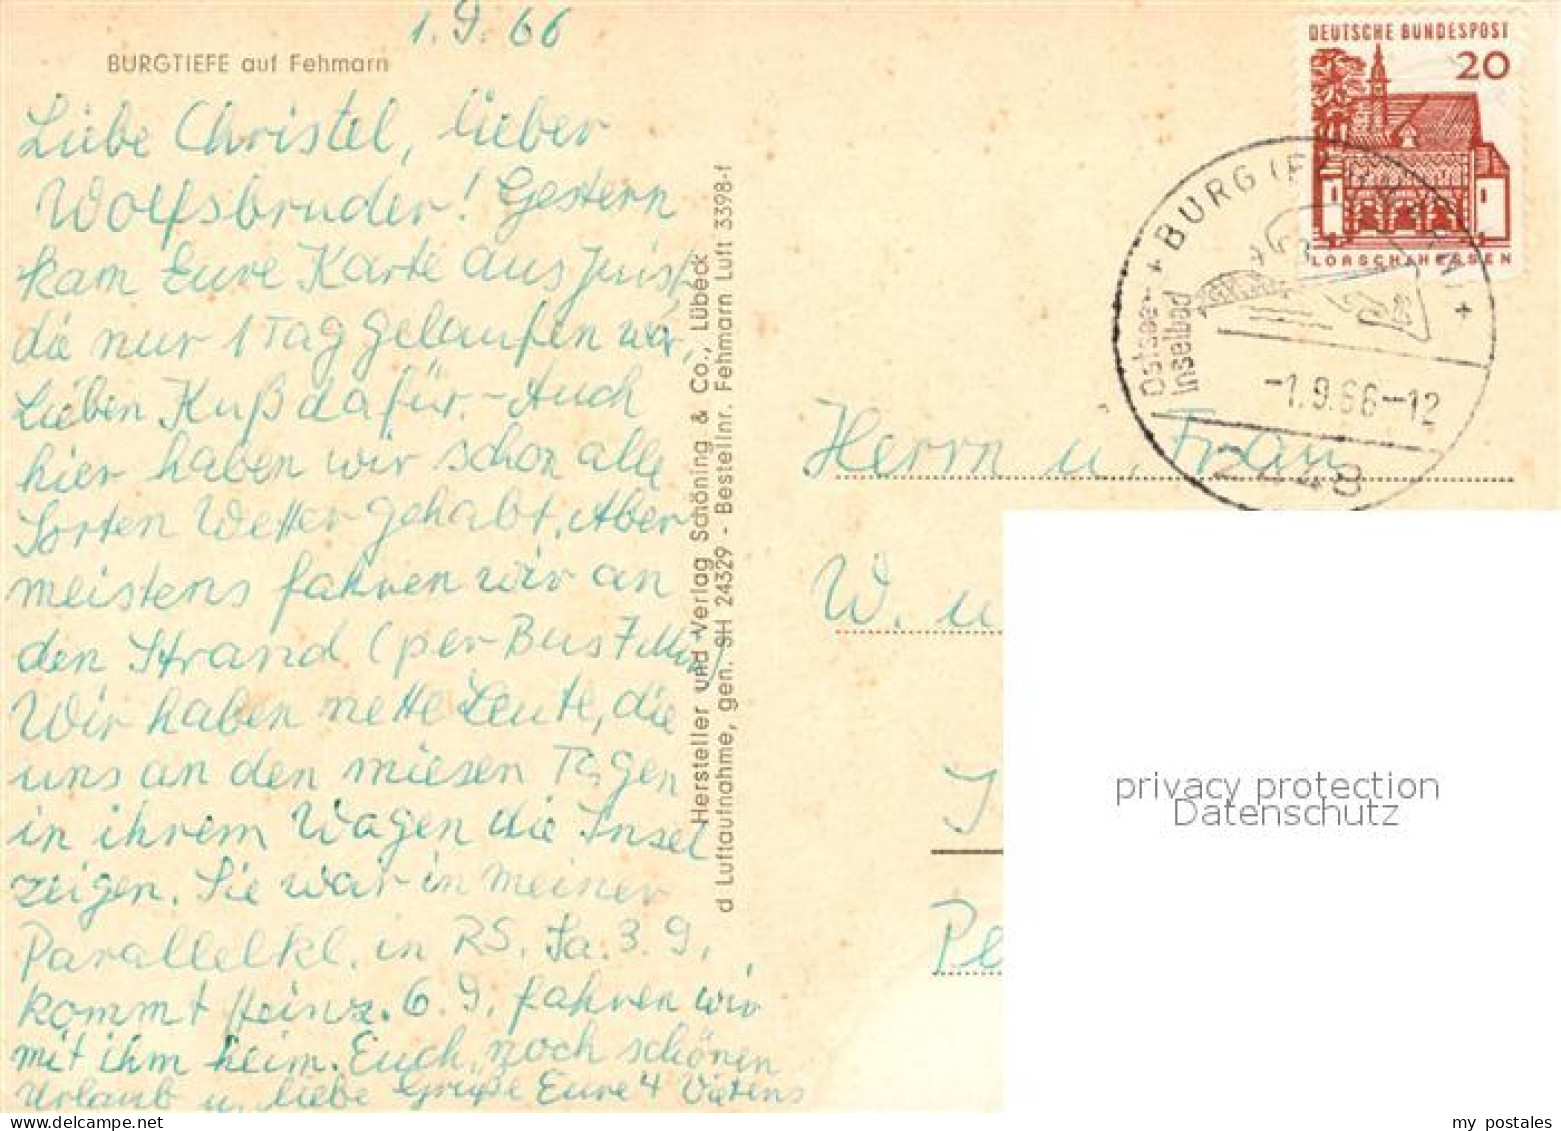 1.9.66
BURGTIEFE auf Fehmarn
Liebe Christel, lieber
Wolfsbruder! Gestern
kam Eure Karte aus Juist,
die nur 1 Tag gelaufen war,
Lieben Kuß dafür. - Auch
hier haben wir schon alle
Sorten Wetter gehabt. Aber
meistens fahren wir an
den Strand (per Bus 7 Min)
Wir haben nette Leute, die
uns an den miesen Tagen
in ihrem Wagen die Insel
zeigen. Sie war in meiner
Parallelkl. in RS. Sa. 3.9.
kommt Heinz. 6.9. fahren wir
mit ihm heim. Euch noch schönen
Urlaub u. liebe Grüße Eure 4
Hersteller und Verlag Schöning & Co., Lübeck
d Luftaufnahme, gen. SH 24329 - Bestellnr. Fehmarn Luft 3398-f
DEUTSCHE BUNDESPOST
20
LORSCH/HESSEN
BURG (FEHMARN)
Ostsee-
Inselbad
-1.9.66-12
2448
Herrn u. Frau
W. u
Pe
privacy protection
Datenschutz
my postales